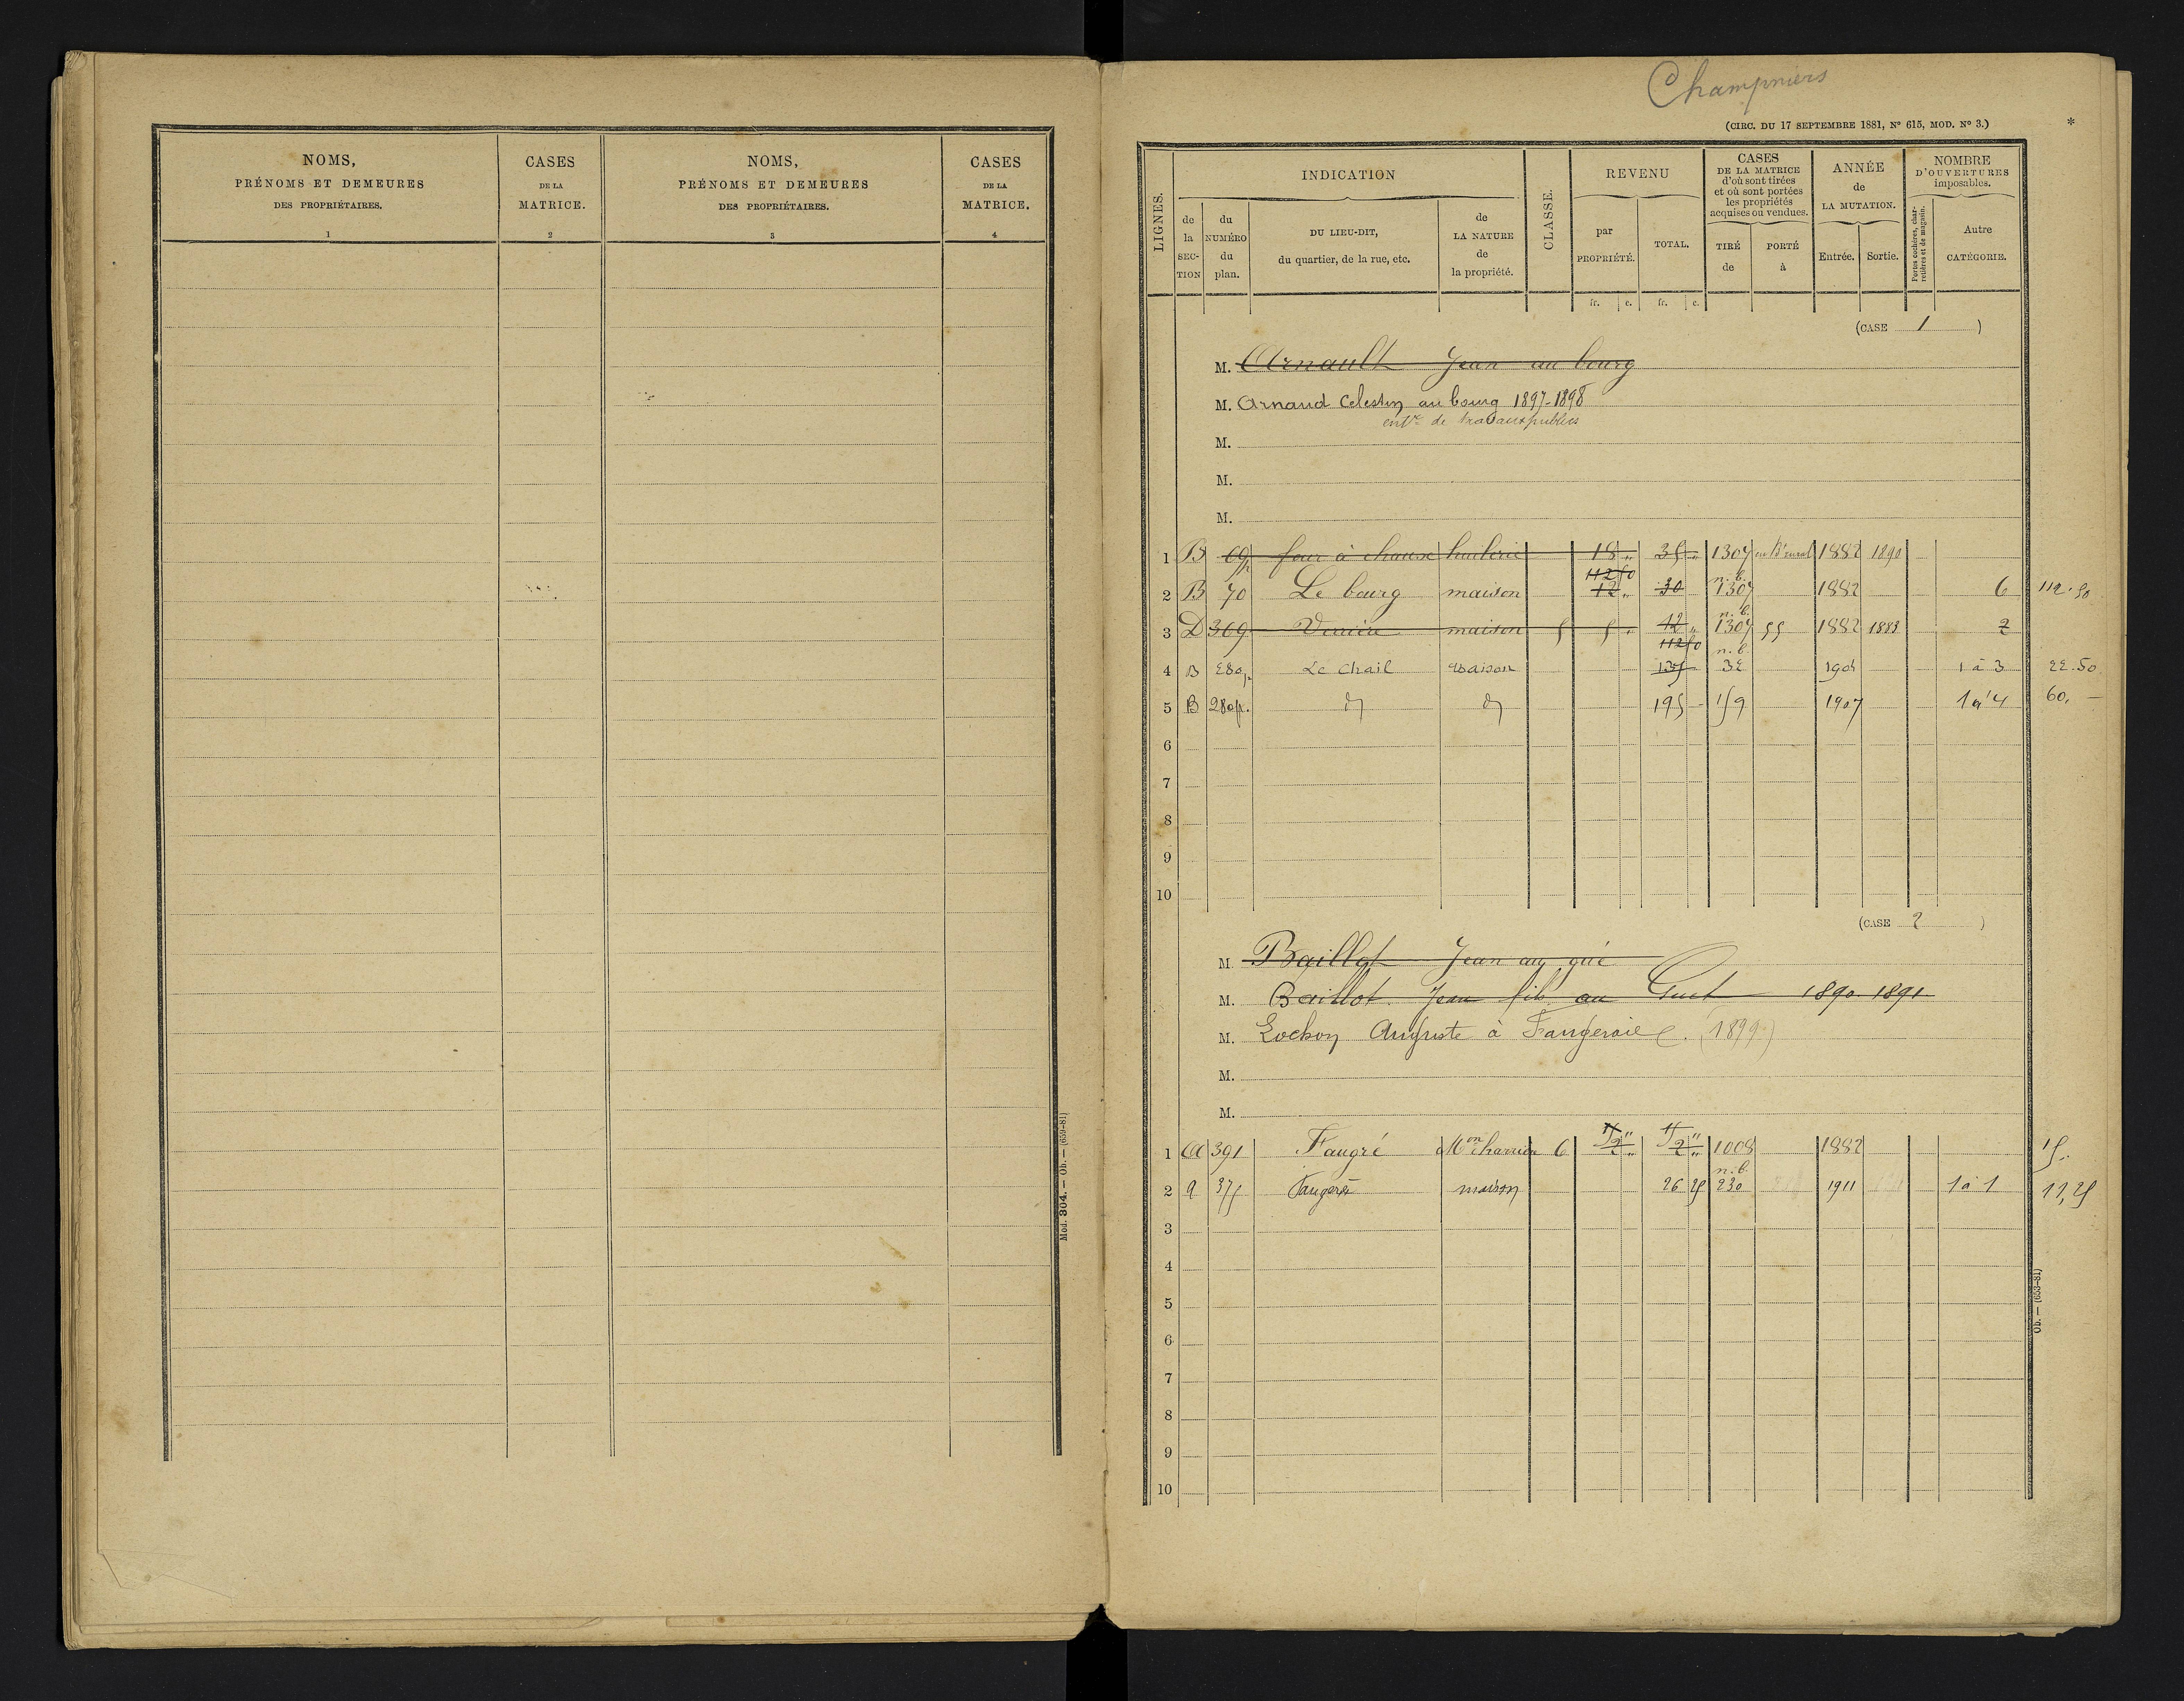 NOMS,
PRÉNOMS ET DEMEURES
DES PROPRIÉTAIRES.
1
CASES
DE LA
MATRICE.
2
NOMS,
PRÉNOMS ET DEMEURES
DES PROPRIÉTAIRES.
3
CASES
DE LA
MATRICE.
4
Mod. 304. — Ob. — (659-81)
Champniers
(CIRC. DU 17 SEPTEMBRE 1881, N° 615, MOD. N° 3.)
*
LIGNES.
INDICATION
de la SECTION
du NUMÉRO du plan.
DU LIEU-DIT,
du quartier, de la rue, etc.
de LA NATURE de la propriété.
CLASSE.
REVENU
par PROPRIÉTÉ.
TOTAL.
CASES
DE LA MATRICE
d'où sont tirées
et où sont portées
les propriétés
acquises ou vendues.
TIRÉ de
PORTÉ à
ANNÉE
de
LA MUTATION.
Entrée.
Sortie.
NOMBRE
D'OUVERTURES
imposables.
Portes cochères, charretières et de magasin.
Autre CATÉGORIE.
fr. c. fr. c.
(CASE 1 )
M. Arnault Jean au bourg
M. Arnaud Celestin au bourg 1897-1898
entr de travaux publics
M.
M.
M.
1 B 69p four à chaux huilerie 18 " 35 " 1307 1882 1890
112 50
2 B 70 Le bourg maison 12 " 30 n.b. 1307 1882 6 112.50
3 D 369 maison 5 5 " 12 " n.b. 1307 55 1882 1883 2
112 50 n.b.
4 B 280p Le Chail maison 135 32 1 à 3 22.50
5 B 280p. d° d° 195 — 159 1907 1 à 4 60. —
6
7
8
9
10
(CASE 2 )
M. Baillot Jean au gué
M. Baillot Jean fils au Guet 1890-1891
M. Lochon Auguste à Faugeraie (1899)
M.
M.
1 A 391 Faugré Mon charrière 6 2 " 2 " 1008 1882 15.
n.b.
2 a 375 Faugeré maison 26 25 230 1911 1 à 1 11,25
3
4
5
6
7
8
9
10
Ob. — (653-81)